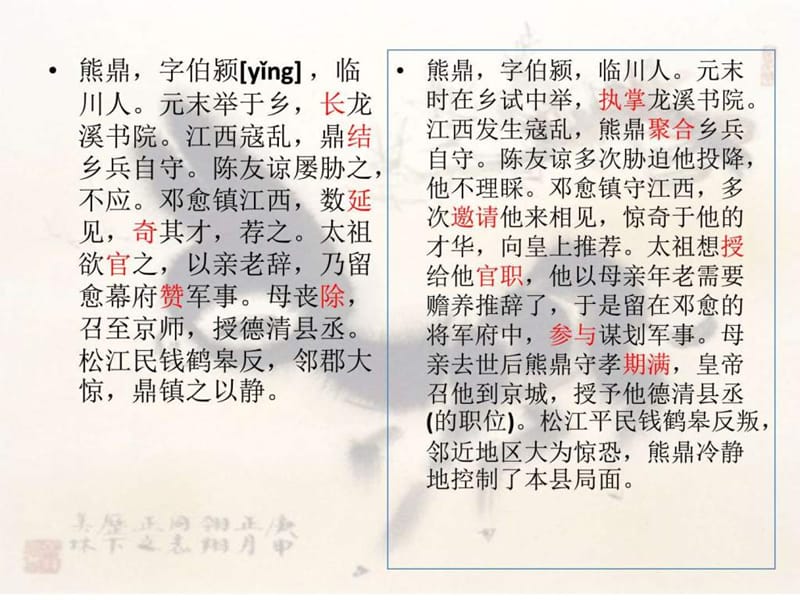 • 熊鼎，字伯颍[yǐng] ，临
川人。元末举于乡，长龙
溪书院。江西寇乱，鼎结
乡兵自守。陈友谅屡胁之，
不应。邓愈镇江西，数延
见，奇其才，荐之。太祖
欲官之，以亲老辞，乃留
愈幕府赞军事。母丧除，
召至京师，授德清县丞。
松江民钱鹤皋反，邻郡大
惊，鼎镇之以静。
• 熊鼎，字伯颍，临川人。元末
时在乡试中举，执掌龙溪书院。
江西发生寇乱，熊鼎聚合乡兵
自守。陈友谅多次胁迫他投降，
他不理睬。邓愈镇守江西，多
次邀请他来相见，惊奇于他的
才华，向皇上推荐。太祖想授
给他官职，他以母亲年老需要
赡养推辞了，于是留在邓愈的
将军府中，参与谋划军事。母
亲去世后熊鼎守孝期满，皇帝
召他到京城，授予他德清县丞
(的职位)。松江平民钱鹤皋反叛，
邻近地区大为惊恐，熊鼎冷静
地控制了本县局面。